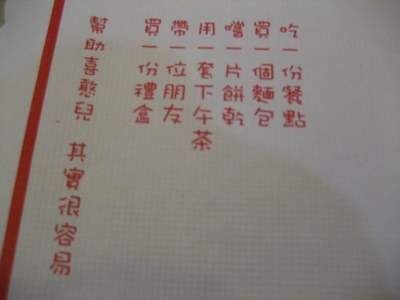 吃一份餐點
買一個麵包
嚐一片餅乾
用一套下午茶
帶一位朋友
買一份禮盒
幫助喜憨兒 其實很容易